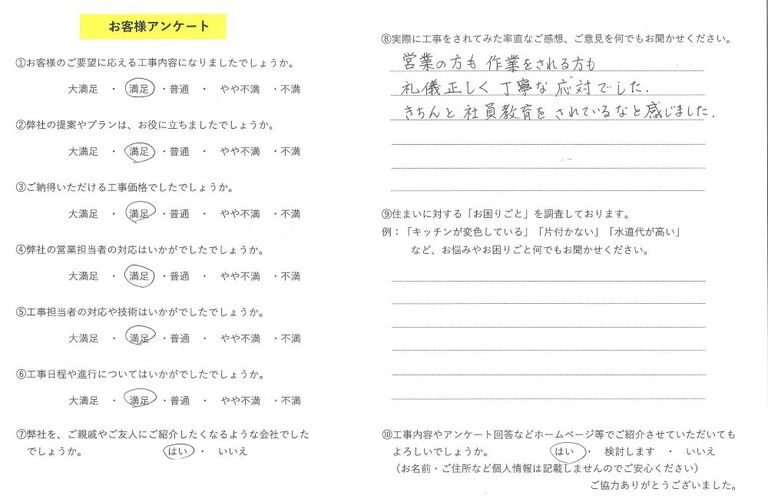 お客様アンケート
①お客様のご要望に応える工事内容になりましたでしょうか。
大満足 ・ 満足 ・普通 ・ やや不満 ・不満
②弊社の提案やプランは、お役に立ちましたでしょうか。
大満足 ・ 満足 ・普通 ・ やや不満 ・不満
③ご納得いただける工事価格でしたでしょうか。
大満足 ・ 満足 ・普通 ・ やや不満 ・不満
④弊社の営業担当者の対応はいかがでしたでしょうか。
大満足 ・ 満足 ・普通 ・ やや不満 ・不満
⑤工事担当者の対応や技術はいかがでしたでしょうか。
大満足 ・ 満足 ・普通 ・ やや不満 ・不満
⑥工事日程や進行についてはいかがでしたでしょうか。
大満足 ・ 満足 ・普通 ・ やや不満 ・不満
⑦弊社を、ご親戚やご友人にご紹介したくなるような会社でした
でしょうか。 はい ・ いいえ
⑧実際に工事をされてみた率直なご感想、ご意見を何でもお聞かせください。
営業の方も 作業をされる方も
礼儀正しく 丁寧な 応対でした.
きちんと 社員教育を されているなと感じました.
⑨住まいに対する「お困りごと」を調査しております。
例：「キッチンが変色している」「片付かない」「水道代が高い」
など、お悩みやお困りごと何でもお聞かせください。
⑩工事内容やアンケート回答などホームページ等でご紹介させていただいても
よろしいでしょうか。 はい ・ 検討します ・ いいえ
（お名前・ご住所など個人情報は記載しませんのでご安心ください）
ご協力ありがとうございました。